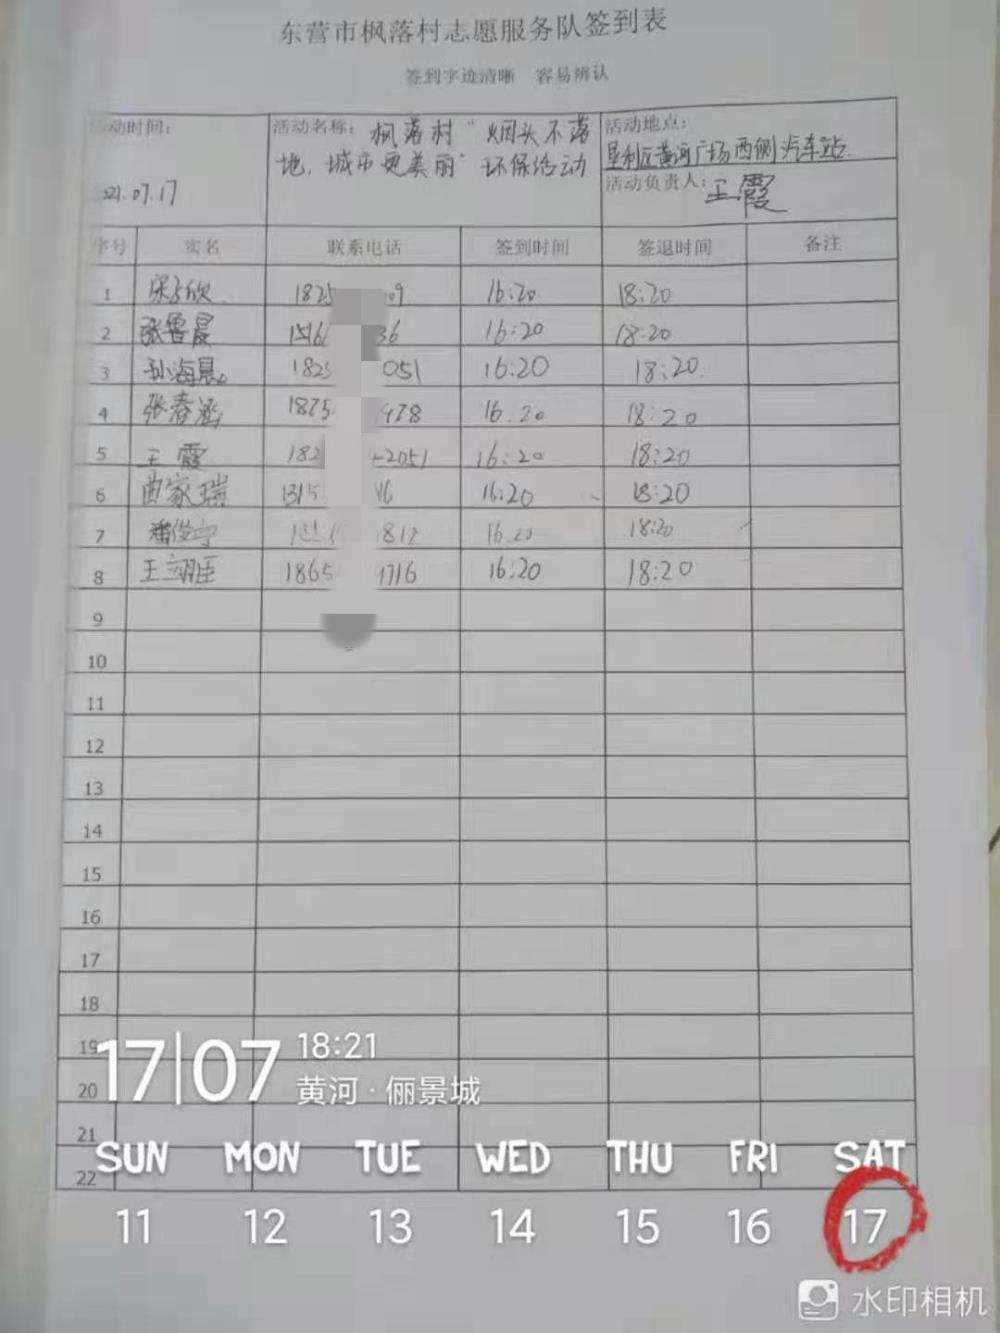 东营市枫落村志愿服务队签到表
签到字迹清晰 容易辨认
活动时间:
21.07.17
活动名称: 枫落村“烟头不落
地,城市更美丽”环保活动
活动地点:
垦利区黄河广场西侧汽车站
活动负责人: 王霞
序号 实名 联系电话 签到时间 签退时间 备注
1 宋子欣 1825 09 16:20 18:20
2 张鲁晨 1516 36 16:20 18:20
3 孙海晨 1825 051 16:20 18:20
4 张春涵 1875 978 16.20 18:20
5 王霞 182 2051 16:20 18:20
6 曲家瑞 1315 16 16:20 18:20
7 潘俊宁 1812 16.20 18:20
8 王翊臣 1865 9716 16:20 18:20
9
10
11
12
13
14
15
16
17
18
19
20
21
22
17|07 18:21
黄河·俪景城
SUN MON TUE WED THU FRI SAT
11 12 13 14 15 16 17
水印相机